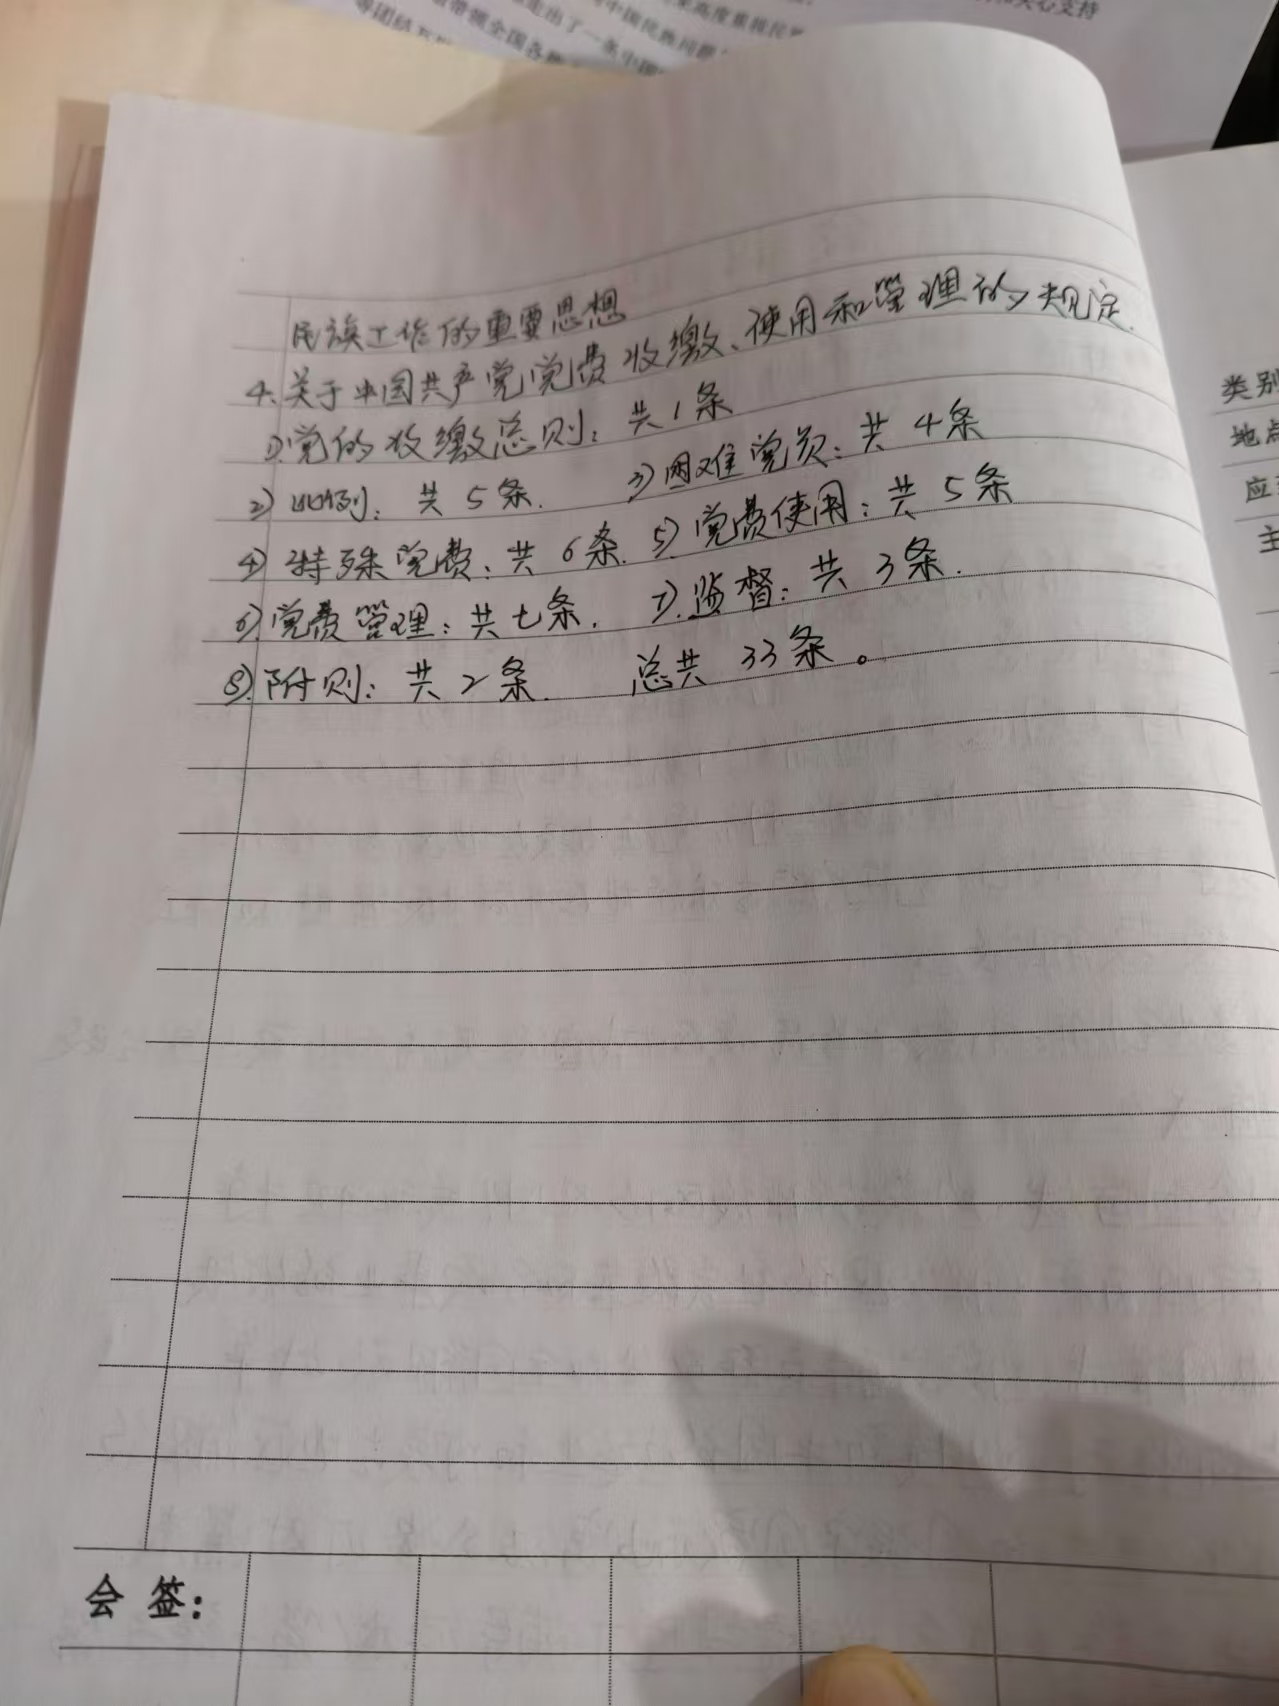 关心支持
民族工作的重要思想
4.关于中国共产党党费收缴、使用和管理的规定.
1)党的收缴总则:共1条
2)比例:共5条. 3)困难党员:共4条
4)特殊党费:共6条. 5)党费使用:共5条
6)党费管理:共七条. 7).监督:共3条.
8)附则:共2条. 总共33条。
类别
地点
应
主
会签: